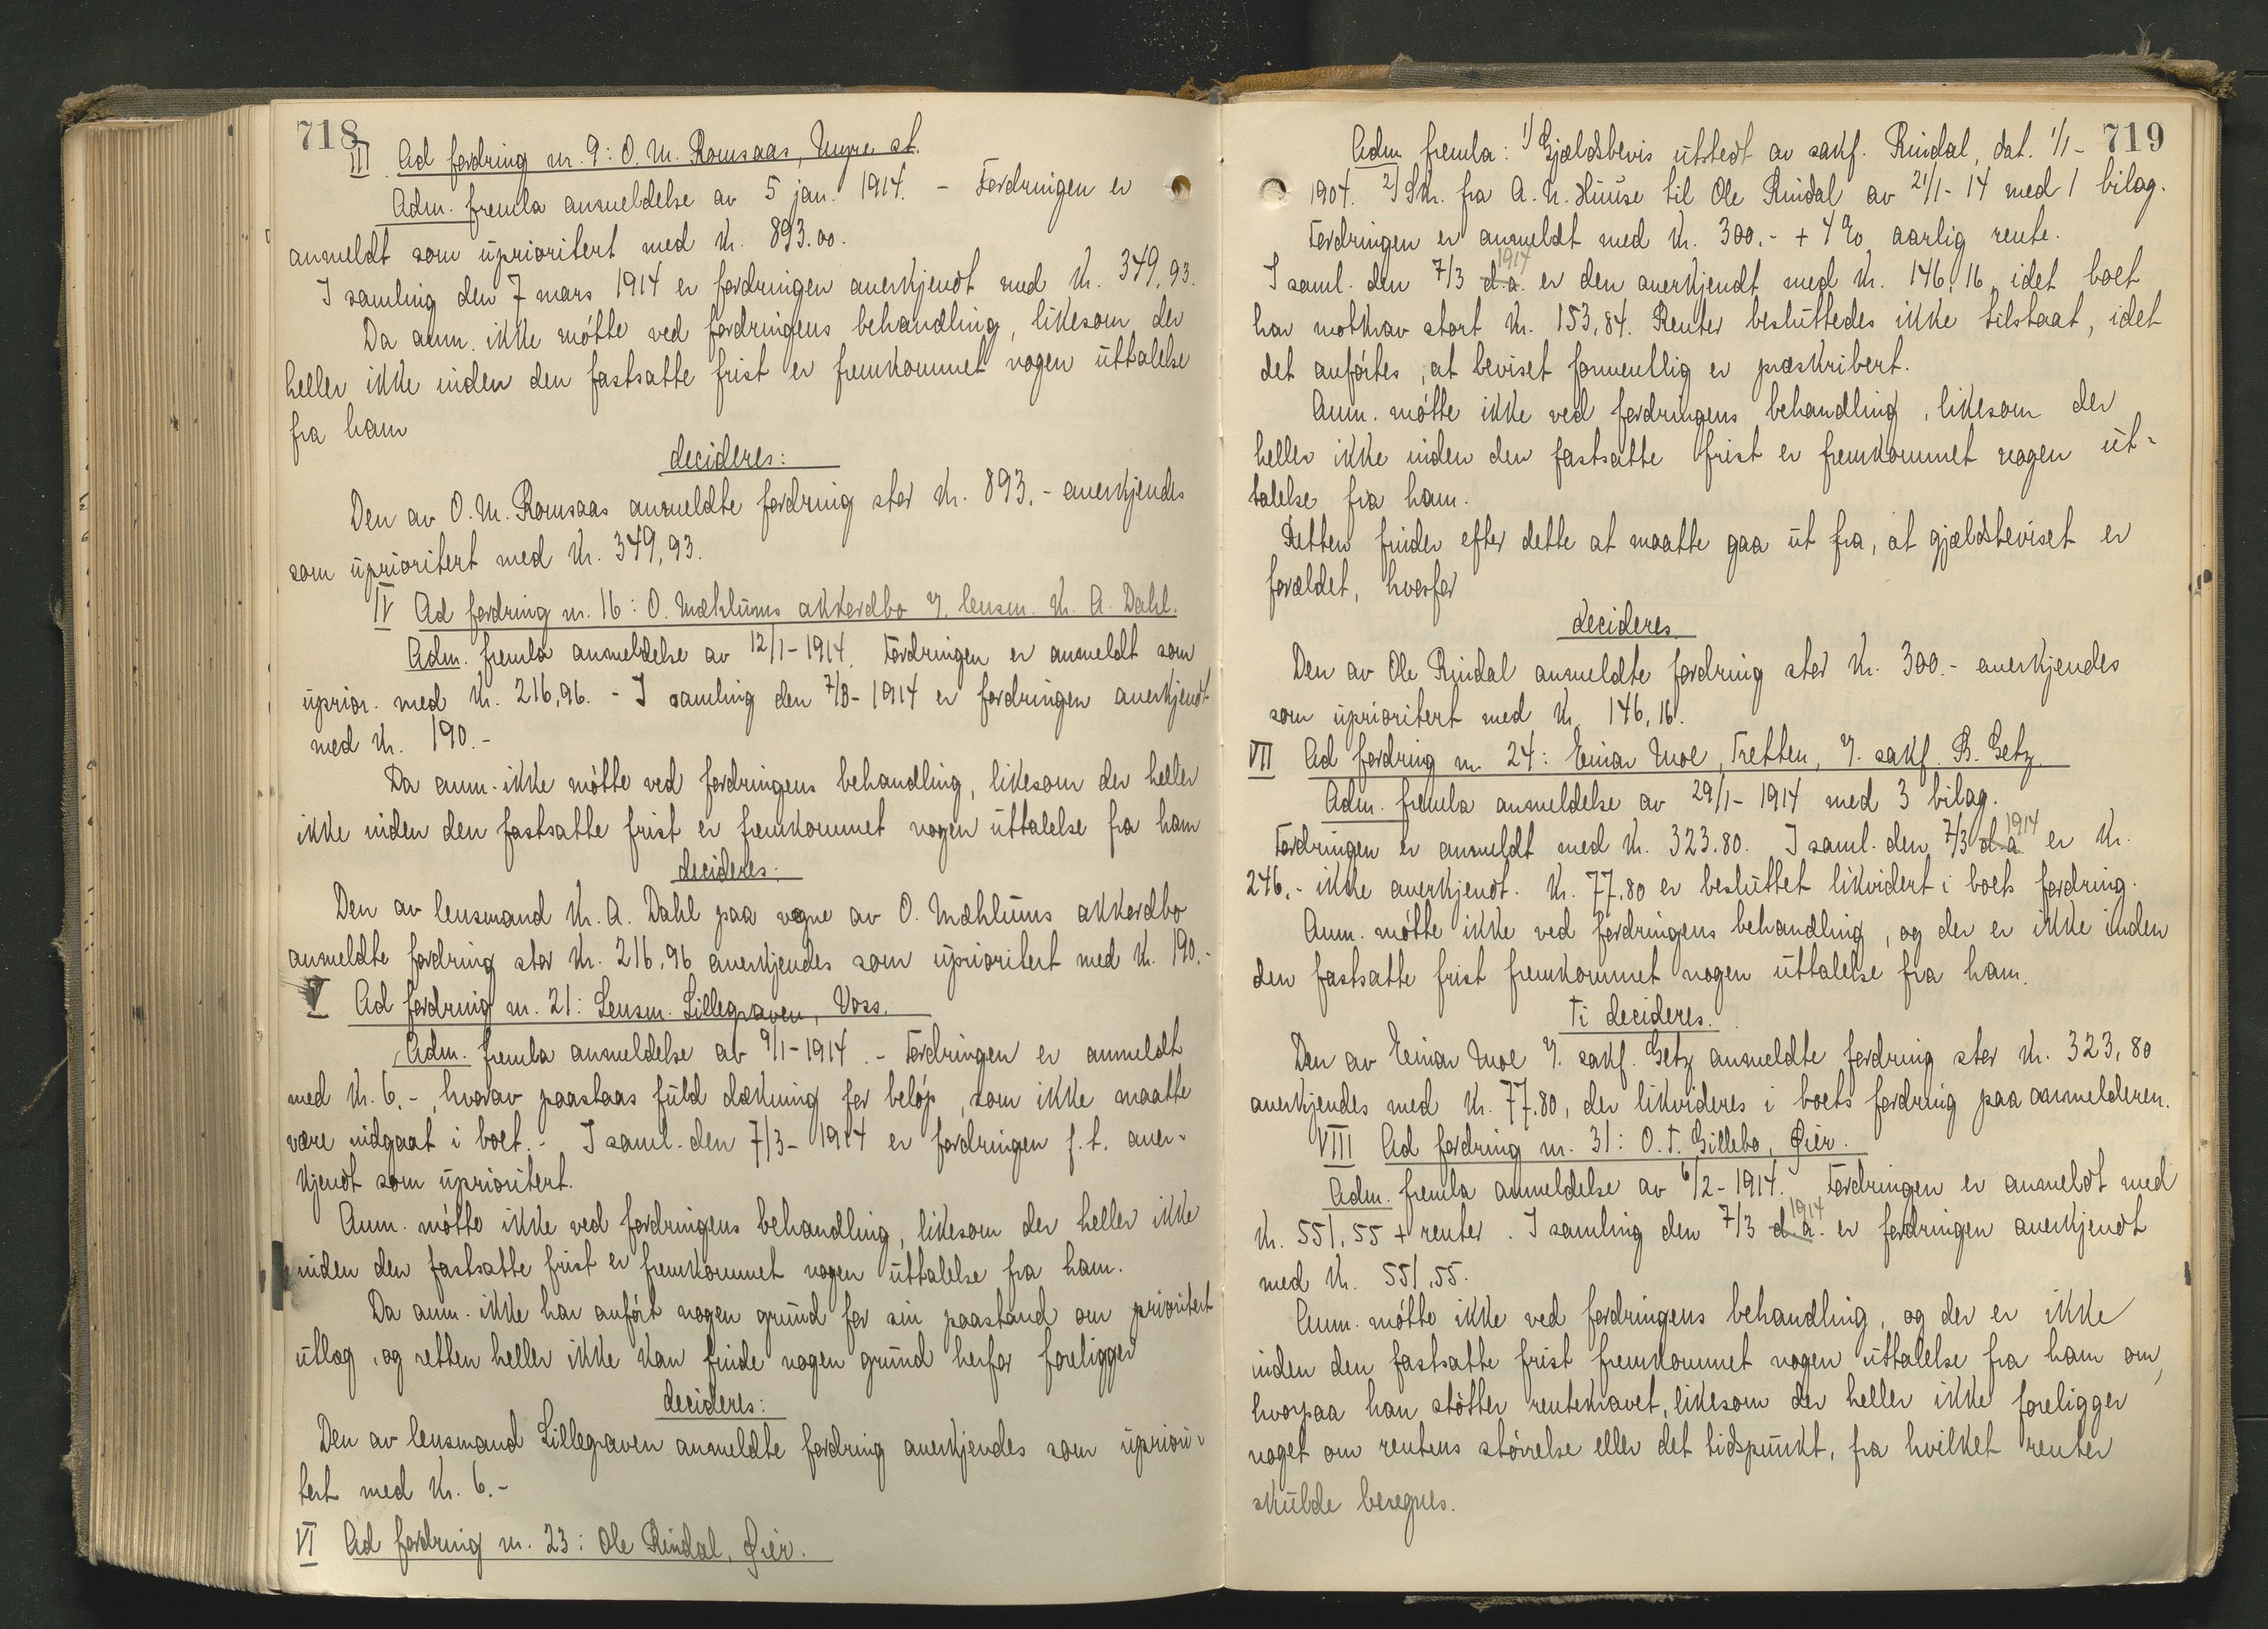 718
III Ad fordring nr. 9: O. M. Romsaas, Myre st.
Adm. fremla anmeldelse av 5 jan. 1914. - Fordringen er
anmeldt som uprioritert med kr. 893.00.
I samling den 7 mars 1914 er fordringen anerkjendt med kr. 349,93.
Da anm. ikke møtte ved fordringens behandling, likesom der
heller ikke inden den fastsatte frist er fremkommet nogen uttalelse
fra ham
decideres:
Den av O. M. Romsaas anmeldte fordring stor kr. 893.- anerkjendes
som uprioritert med kr. 349,93.
IV Ad fordring nr. 16: O. Mæhlums akkordbo v. lensm. K. A. Dahl.
Adm. fremla anmeldelse av 12/1-1914. Fordringen er anmeldt som
uprior. med kr. 216,96. - I samling den 7/3-1914 er fordringen anerkjendt
med kr. 190.-
Da anm. ikke møtte ved fordringens behandling, likesom der heller
ikke inden den fastsatte frist er fremkommet nogen uttalelse fra ham
decideres:
Den av lensmand K. A. Dahl paa vegne av O. Mæhlums akkordbo
anmeldte fordring stor kr. 216,96 anerkjendes som uprioritert med kr. 190.-
V Ad fordring nr. 21: Lensm. Lillegraven, Voss.
Adm. fremla anmeldelse av 9/1-1914. - Fordringen er anmeldt
med kr. 6.-, hvorav paastaas fuld dækning for beløp, som ikke maatte
være indgaat i boet. - I saml. den 7/3-1914 er fordringen f. t. aner-
kjendt som uprioritert.
Anm. møtte ikke ved fordringens behandling, likesom der heller ikke
inden den fastsatte frist er fremkommet nogen uttalelse fra ham.
Da anm. ikke har anført nogen grund for sin paastand om prioritert
utlæg, og retten heller ikke kan finde nogen grund herfor foreligger
decideres:
Den av lensmand Lillegraven anmeldte fordring anerkjendes som upriori-
tert med kr. 6.-
VI Ad fordring nr. 23: Ole Rindal, Øier.
719
Adm. fremla: 1) Gjældsbevis utstedt av sakf. Rindal, dat. 1/1-
1904. 2) Skr. fra A. N. Huuse til Ole Rindal av 21/1-14 med 1 bilag.
Fordringen er anmeldt med kr. 300.- + 4 % aarlig rente.
I saml. den 7/3 d.a. 1914 er den anerkjendt med kr. 146,16, idet boet
har motkrav stort kr. 153,84. Renter besluttedes ikke tilstaat, idet
det anførtes, at beviset formentlig er præskribert.
Anm. møtte ikke ved fordringens behandling, likesom der
heller ikke inden den fastsatte frist er fremkommet nogen ut-
talelse fra ham.
Retten finder efter dette at maatte gaa ut fra, at gjældsbeviset er
forældet, hvorfor
decideres
Den av Ole Rindal anmeldte fordring stor kr. 300.- anerkjendes
som uprioritert med kr. 146,16.
VII Ad fordring nr. 24: Einar Moe, Tretten, v. sakf. B. Getz.
Adm. fremla anmeldelse av 29/1-1914 med 3 bilag.
Fordringen er anmeldt med kr. 323.80. I saml. den 7/3 d.a. 1914 er kr.
246.- ikke anerkjendt. kr. 77.80 er besluttet likvidert i boets fordring.
Anm. møtte ikke ved fordringens behandling, og der er ikke inden
den fastsatte frist fremkommet nogen uttalelse fra ham.
Ti decideres.
Den av Einar Moe v. sakf. Getz anmeldte fordring stor kr. 323,80
anerkjendes med kr. 77.80, der likvideres i boets fordring paa anmelderen.
VIII Ad fordring nr. 31: O. T. Gillebo, Øier.
Adm. fremla anmeldelse av 6/2-1914. Fordringen er anmeldt med
kr. 551,55 + renter. I samling den 7/3 d.a. 1914 er fordringen anerkjendt
med kr. 551,55.
Anm. møtte ikke ved fordringens behandling, og der er ikke
inden den fastsatte frist fremkommet nogen uttalelse fra ham om,
hvorpaa han støtter rentekravet, likesom der heller ikke foreligger
noget om rentens størrelse eller det tidspunkt, fra hvilket renter
skulde beregnes.